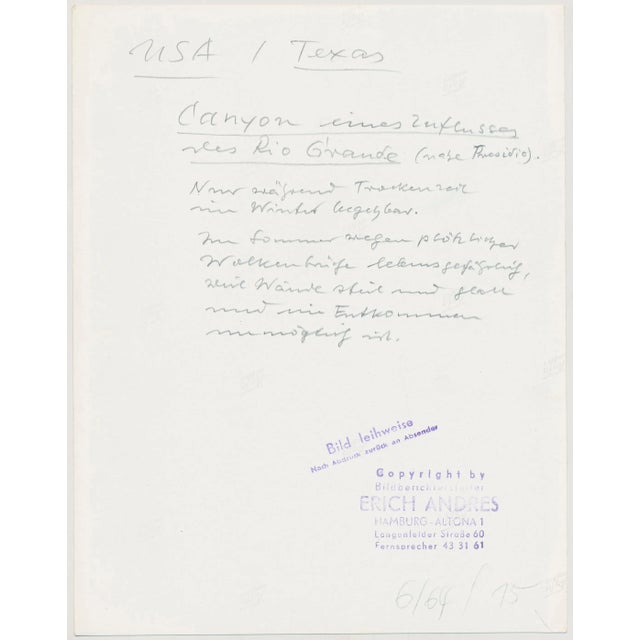 USA / Texas
Canyon eines Zuflusses
des Rio Grande (nahe Presidio).
Nur während Trockenzeit
im Winter begehbar.
Im Sommer wegen plötzlicher
Wolkenbrüche lebensgefährlich,
weil Wände steil und glatt
und ein Entkommen
unmöglich ist.
Bild leihweise
Nach Abdruck zurück an Absender
Copyright by
Bildberichterstatter
ERICH ANDRES
HAMBURG-ALTONA 1
Langenfelder Straße 60
Fernsprecher 43 31 61
6/64 / 15